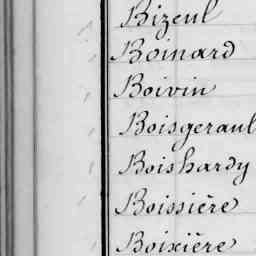 Bizeul
Boinard
Boivin
Boisgeraul
Boishardy
Boissière
Boixière